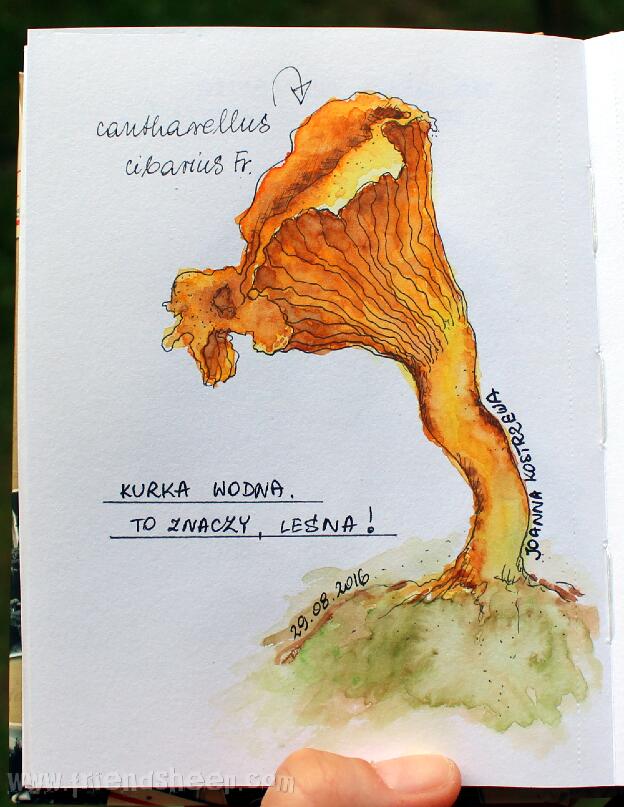 cantharellus
cibarius Fr.
KURKA WODNA.
TO ZNACZY, LEŚNA!
JOANNA KOSTRZEWA
29.08.2016
www.friendsheep.com